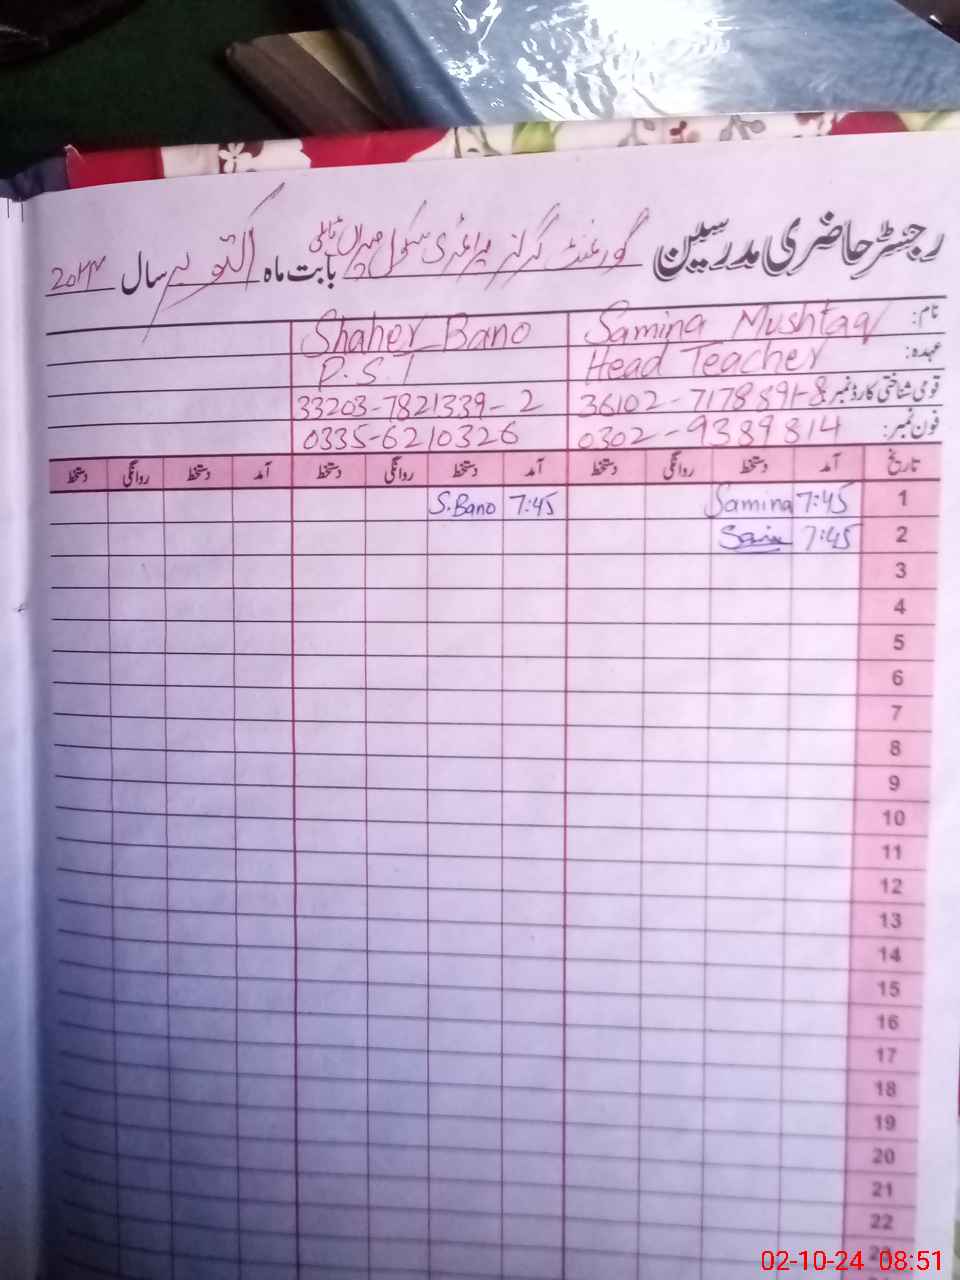 رجسٹر حاضری مدرسین گورنمنٹ گرلز پرائمری سکول میراں بابت ماہ اکتوبر سال 2024
نام: Samina Mushtaq Shaher Bano
عہدہ: Head Teacher P.S.T
قومی شناختی کارڈ نمبر: 36102-7178891-8 33203-7821339-2
فون نمبر: 0302-9389814 0335-6210326
تاریخ آمد دستخط روانگی دستخط آمد دستخط روانگی دستخط آمد دستخط روانگی دستخط
1 7:45 Samina 7:45 S.Bano
2 7:45
3
4
5
6
7
8
9
10
11
12
13
14
15
16
17
18
19
20
21
22
23
02-10-24 08:51